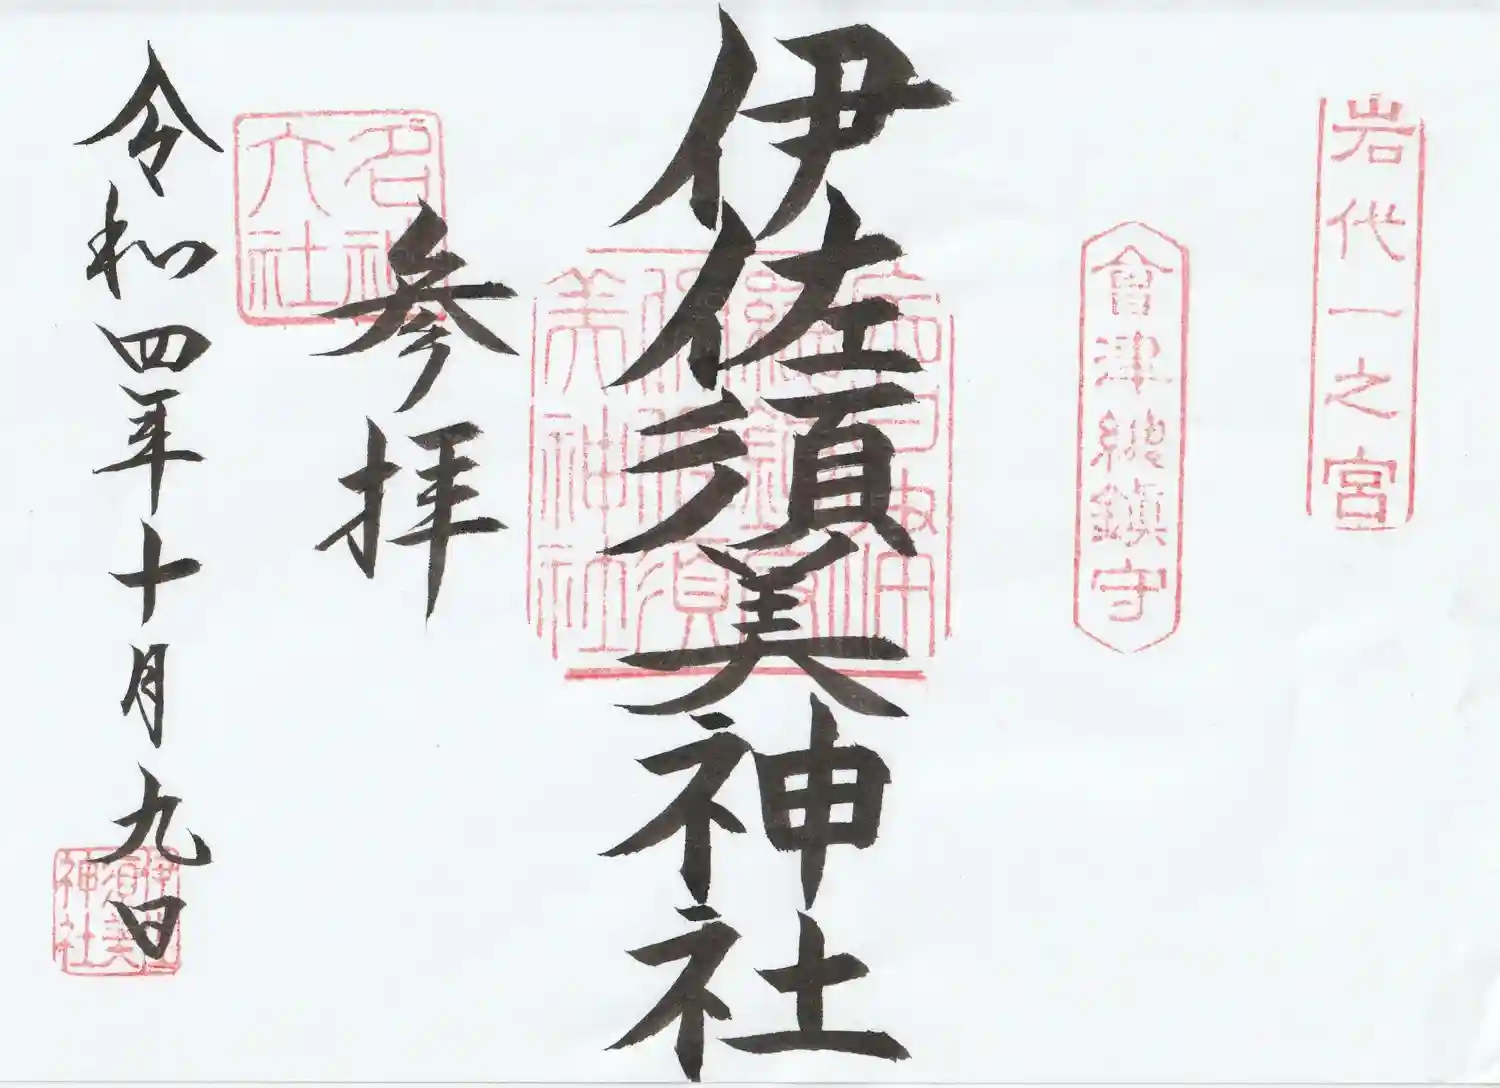 岩代一之宮
會津総鎮守
伊佐須美神社
名神
大社
参拝
令和四年十月九日
伊佐
須美
神社